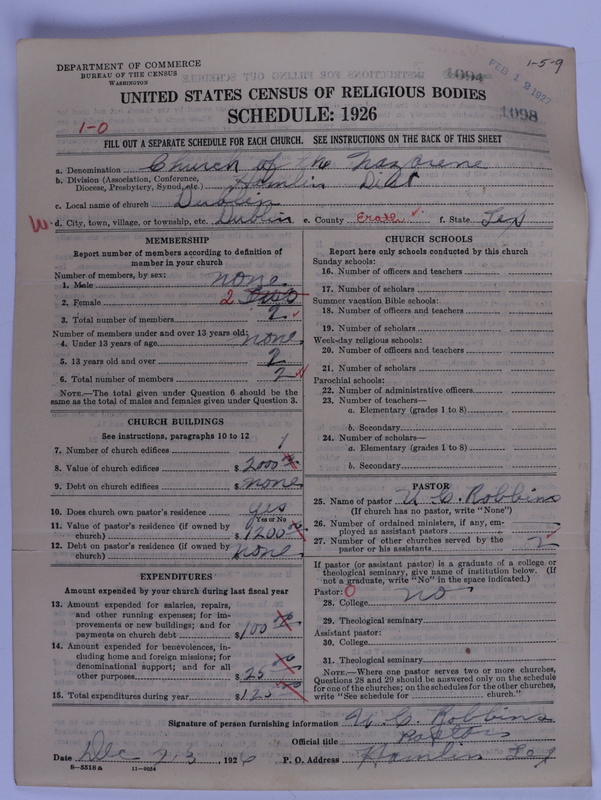 1-5-9
DEPARTMENT OF COMMERCE
BUREAU OF THE CENSUS
WASHINGTON
FEB 12 1927
1094
UNITED STATES CENSUS OF RELIGIOUS BODIES
SCHEDULE: 1926
1098
1-0
FILL OUT A SEPARATE SCHEDULE FOR EACH CHURCH. SEE INSTRUCTIONS ON THE BACK OF THIS SHEET
a. Denomination Church of the Nazarene
b. Division (Association, Conference, Diocese, Presbytery, Synod, etc.) Hamlin Dist
c. Local name of church Dublin
W d. City, town, village, or township, etc. Dublin e. County Erath f. State Tex
MEMBERSHIP
Report number of members according to definition of
member in your church
Number of members, by sex:
1. Male none
2. Female 2
3. Total number of members 2
Number of members under and over 13 years old:
4. Under 13 years of age none
5. 13 years old and over 2
6. Total number of members 2
NOTE.—The total given under Question 6 should be
the same as the total of males and females given under Question 3.
CHURCH BUILDINGS
See instructions, paragraphs 10 to 12
7. Number of church edifices 1
8. Value of church edifices $ 2000 00
9. Debt on church edifices $ none
10. Does church own pastor's residence? yes
Yes or No
11. Value of pastor's residence (if owned by
church) $ 1200 00
12. Debt on pastor's residence (if owned by
church) none
EXPENDITURES
Amount expended by your church during last fiscal year
13. Amount expended for salaries, repairs,
and other running expenses; for im-
provements or new buildings; and for
payments on church debt $ 100 00
14. Amount expended for benevolences, in-
cluding home and foreign missions; for
denominational support; and for all
other purposes $ 25 00
15. Total expenditures during year $ 125 00
CHURCH SCHOOLS
Report here only schools conducted by this church
Sunday schools:
16. Number of officers and teachers
17. Number of scholars
Summer vacation Bible schools:
18. Number of officers and teachers
19. Number of scholars
Week-day religious schools:
20. Number of officers and teachers
21. Number of scholars
Parochial schools:
22. Number of administrative officers
23. Number of teachers—
a. Elementary (grades 1 to 8)
b. Secondary
24. Number of scholars—
a. Elementary (grades 1 to 8)
b. Secondary
PASTOR
25. Name of pastor C. Robbins
(If church has no pastor, write "None")
26. Number of ordained ministers, if any, em-
ployed as assistant pastors
27. Number of other churches served by the
pastor or his assistants 2
If pastor (or assistant pastor) is a graduate of a college or
theological seminary, give name of institution below. (If
not a graduate, write "No" in the space indicated.)
Pastor: 0 no
28. College
29. Theological seminary
Assistant pastor:
30. College
31. Theological seminary
NOTE.—Where one pastor serves two or more churches,
Questions 28 and 29 should be answered only on the schedule
for one of the churches; on the schedules for the other churches,
write "See schedule for church."
Signature of person furnishing information C. Robbins
Official title Pastor
Date Dec 23, 1926 P. O. Address Hamlin Tex
8-5518 a 11-9024